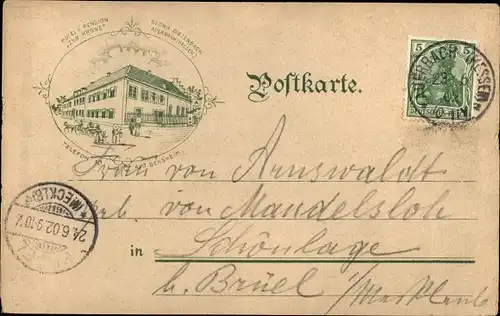 HOTEL & PENSION
"ZUR KRONE"
GEORG DIEFENBACH
AUERBACH (HESSEN)
TELEFON
BENSHEIM
Postkarte.
5 5
AUERBACH (HESSEN)
23
Frau von Arnswaldt
geb. von Mandelsloh
in Schönlage
b. Brüel i/Mecklenb
(MECKLB)
24.6.02.9-10V.